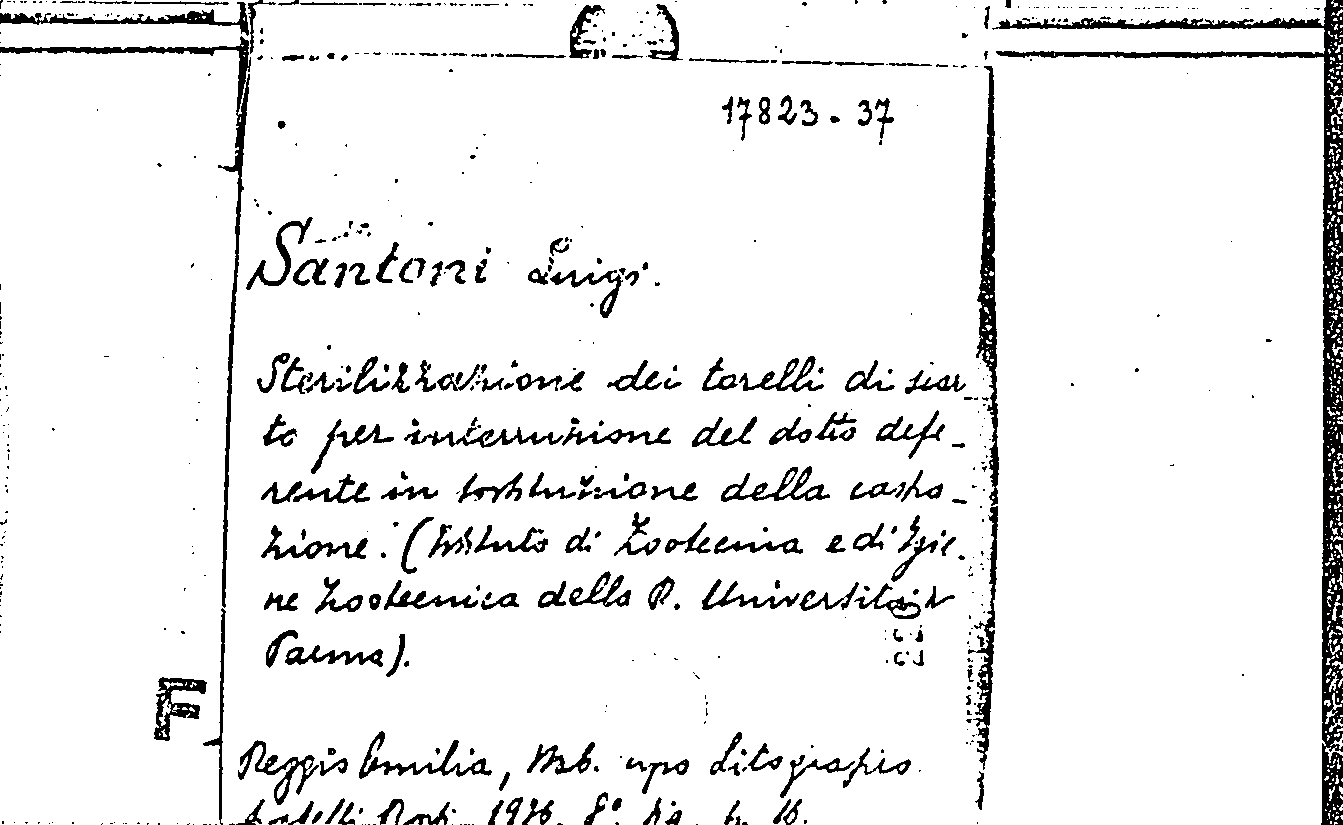 17823 - 37
Santoni Luigi.
Sterilizzazione dei torelli di scar
to per interruzione del dotto defe-
rente in sostituzione della castra-
zione. (Istituto di Zootecnia e di Igie-
ne Zootecnica della R. Università di
Parma).
F
Reggio Emilia, Stab. tipo litografico
fratelli 8° fig. p. 16.